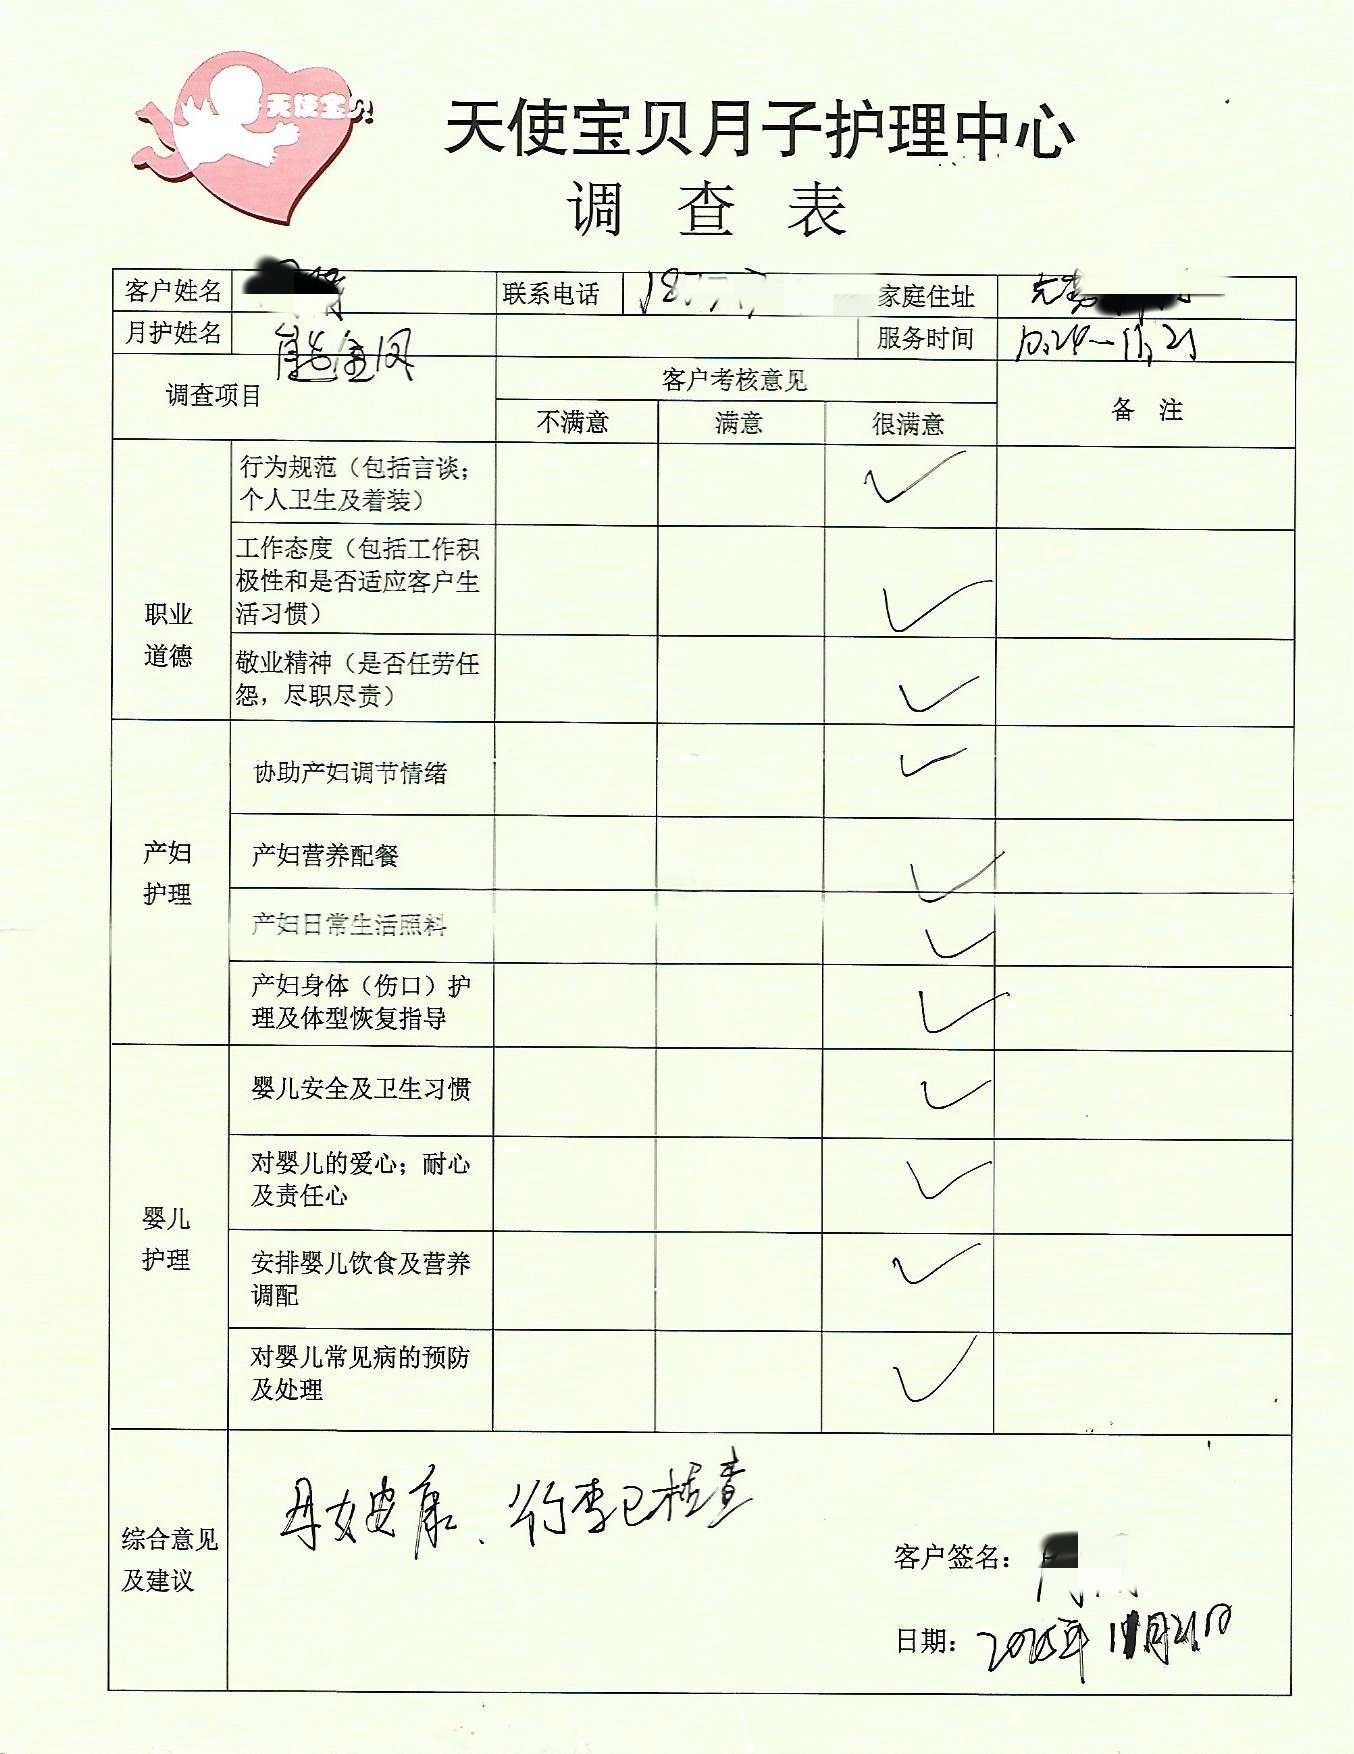 天使宝贝
天使宝贝月子护理中心
调 查 表
客户姓名 联系电话 家庭住址
月护姓名 熊金凤 服务时间 10.24-11.21
调查项目 客户考核意见 备 注
不满意 满意 很满意
职业
道德
行为规范（包括言谈；
个人卫生及着装） ✓
工作态度（包括工作积
极性和是否适应客户生
活习惯） ✓
敬业精神（是否任劳任
怨，尽职尽责） ✓
产妇
护理
协助产妇调节情绪 ✓
产妇营养配餐 ✓
产妇日常生活照料 ✓
产妇身体（伤口）护
理及体型恢复指导 ✓
婴儿
护理
婴儿安全及卫生习惯 ✓
对婴儿的爱心；耐心
及责任心 ✓
安排婴儿饮食及营养
调配 ✓
对婴儿常见病的预防
及处理 ✓
综合意见
及建议
母女健康、行李已检查
客户签名：
日期：2025年11月21日